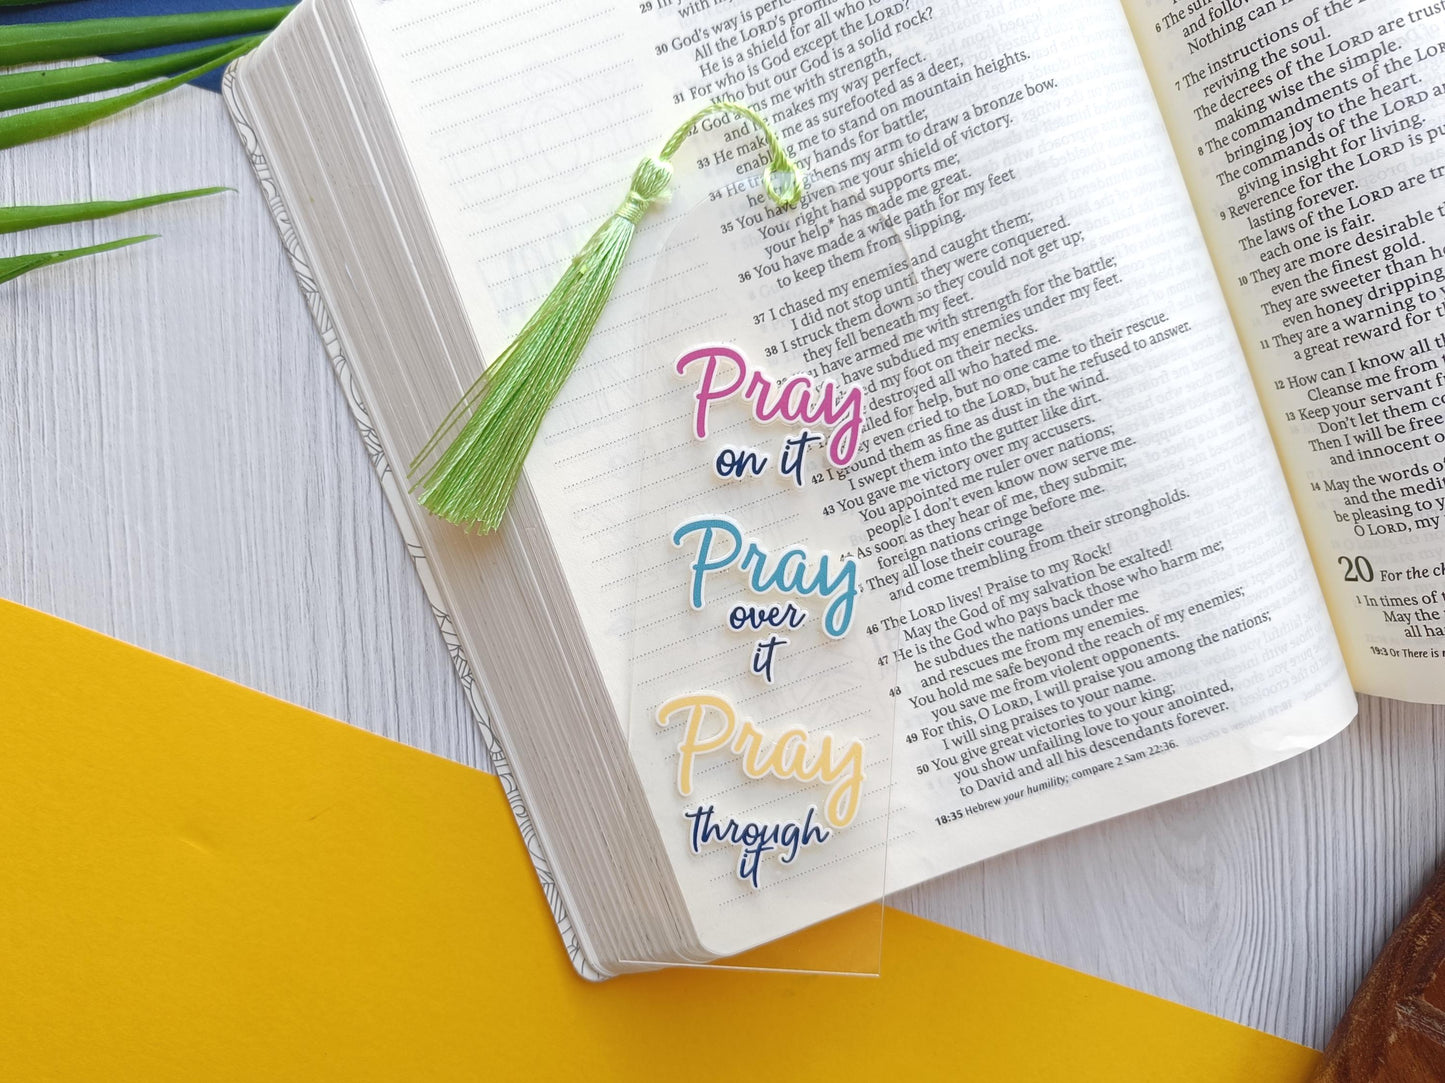 Pray
on it
Pray
over
it
Pray
through
it
29
30 God's way is perfect.
All the LORD's promises
He is a shield for all who look
For who is God except the LORD?
Who but our God is a solid rock?
31
God arms me with strength,
and he makes my way perfect.
33 He makes me as surefooted as a deer,
enabling me to stand on mountain heights.
34 He trains my hands for battle;
he strengthens my arm to draw a bronze bow.
35 You have given me your shield of victory.
Your right hand supports me;
your help* has made me great.
36 You have made a wide path for my feet
to keep them from slipping.
37 I chased my enemies and caught them;
I did not stop until they were conquered.
38 I struck them down so they could not get up;
they fell beneath my feet.
have armed me with strength for the battle;
have subdued my enemies under my feet.
my foot on their necks.
destroyed all who hated me.
for help, but no one came to their rescue.
even cried to the LORD, but he refused to answer.
42 I ground them as fine as dust in the wind.
I swept them into the gutter like dirt.
43 You gave me victory over my accusers.
You appointed me ruler over nations;
people I don't even know now serve me.
As soon as they hear of me, they submit;
foreign nations cringe before me.
They all lose their courage
and come trembling from their strongholds.
46 The LORD lives! Praise to my Rock!
May the God of my salvation be exalted!
47 He is the God who pays back those who harm me;
he subdues the nations under me
48 and rescues me from my enemies.
You hold me safe beyond the reach of my enemies;
you save me from violent opponents.
49 For this, O LORD, I will praise you among the nations;
I will sing praises to your name.
50 You give great victories to your king;
you show unfailing love to your anointed,
to David and all his descendants forever.
18:35 Hebrew your humility; compare 2 Sam 22:36.
6 The sun
and follow
Nothing can
7 The instructions of the
reviving the soul.
The decrees of the LORD are trust
making wise the simple.
8 The commandments of the Lor
bringing joy to the heart.
The commands of the LORD ar
giving insight for living.
9 Reverence for the LORD is pu
lasting forever.
The laws of the LORD are tr
each one is fair.
10 They are more desirable
even the finest gold.
They are sweeter than ho
even honey dripping
11 They are a warning to
a great reward for
12 How can I know all
Cleanse me from
13 Keep your servant
Don't let them
Then I will be free
and innocent
14 May the words
and the medit
be pleasing to
O LORD, my
20 For the
1 In times of
May the
all
19:3 Or There is